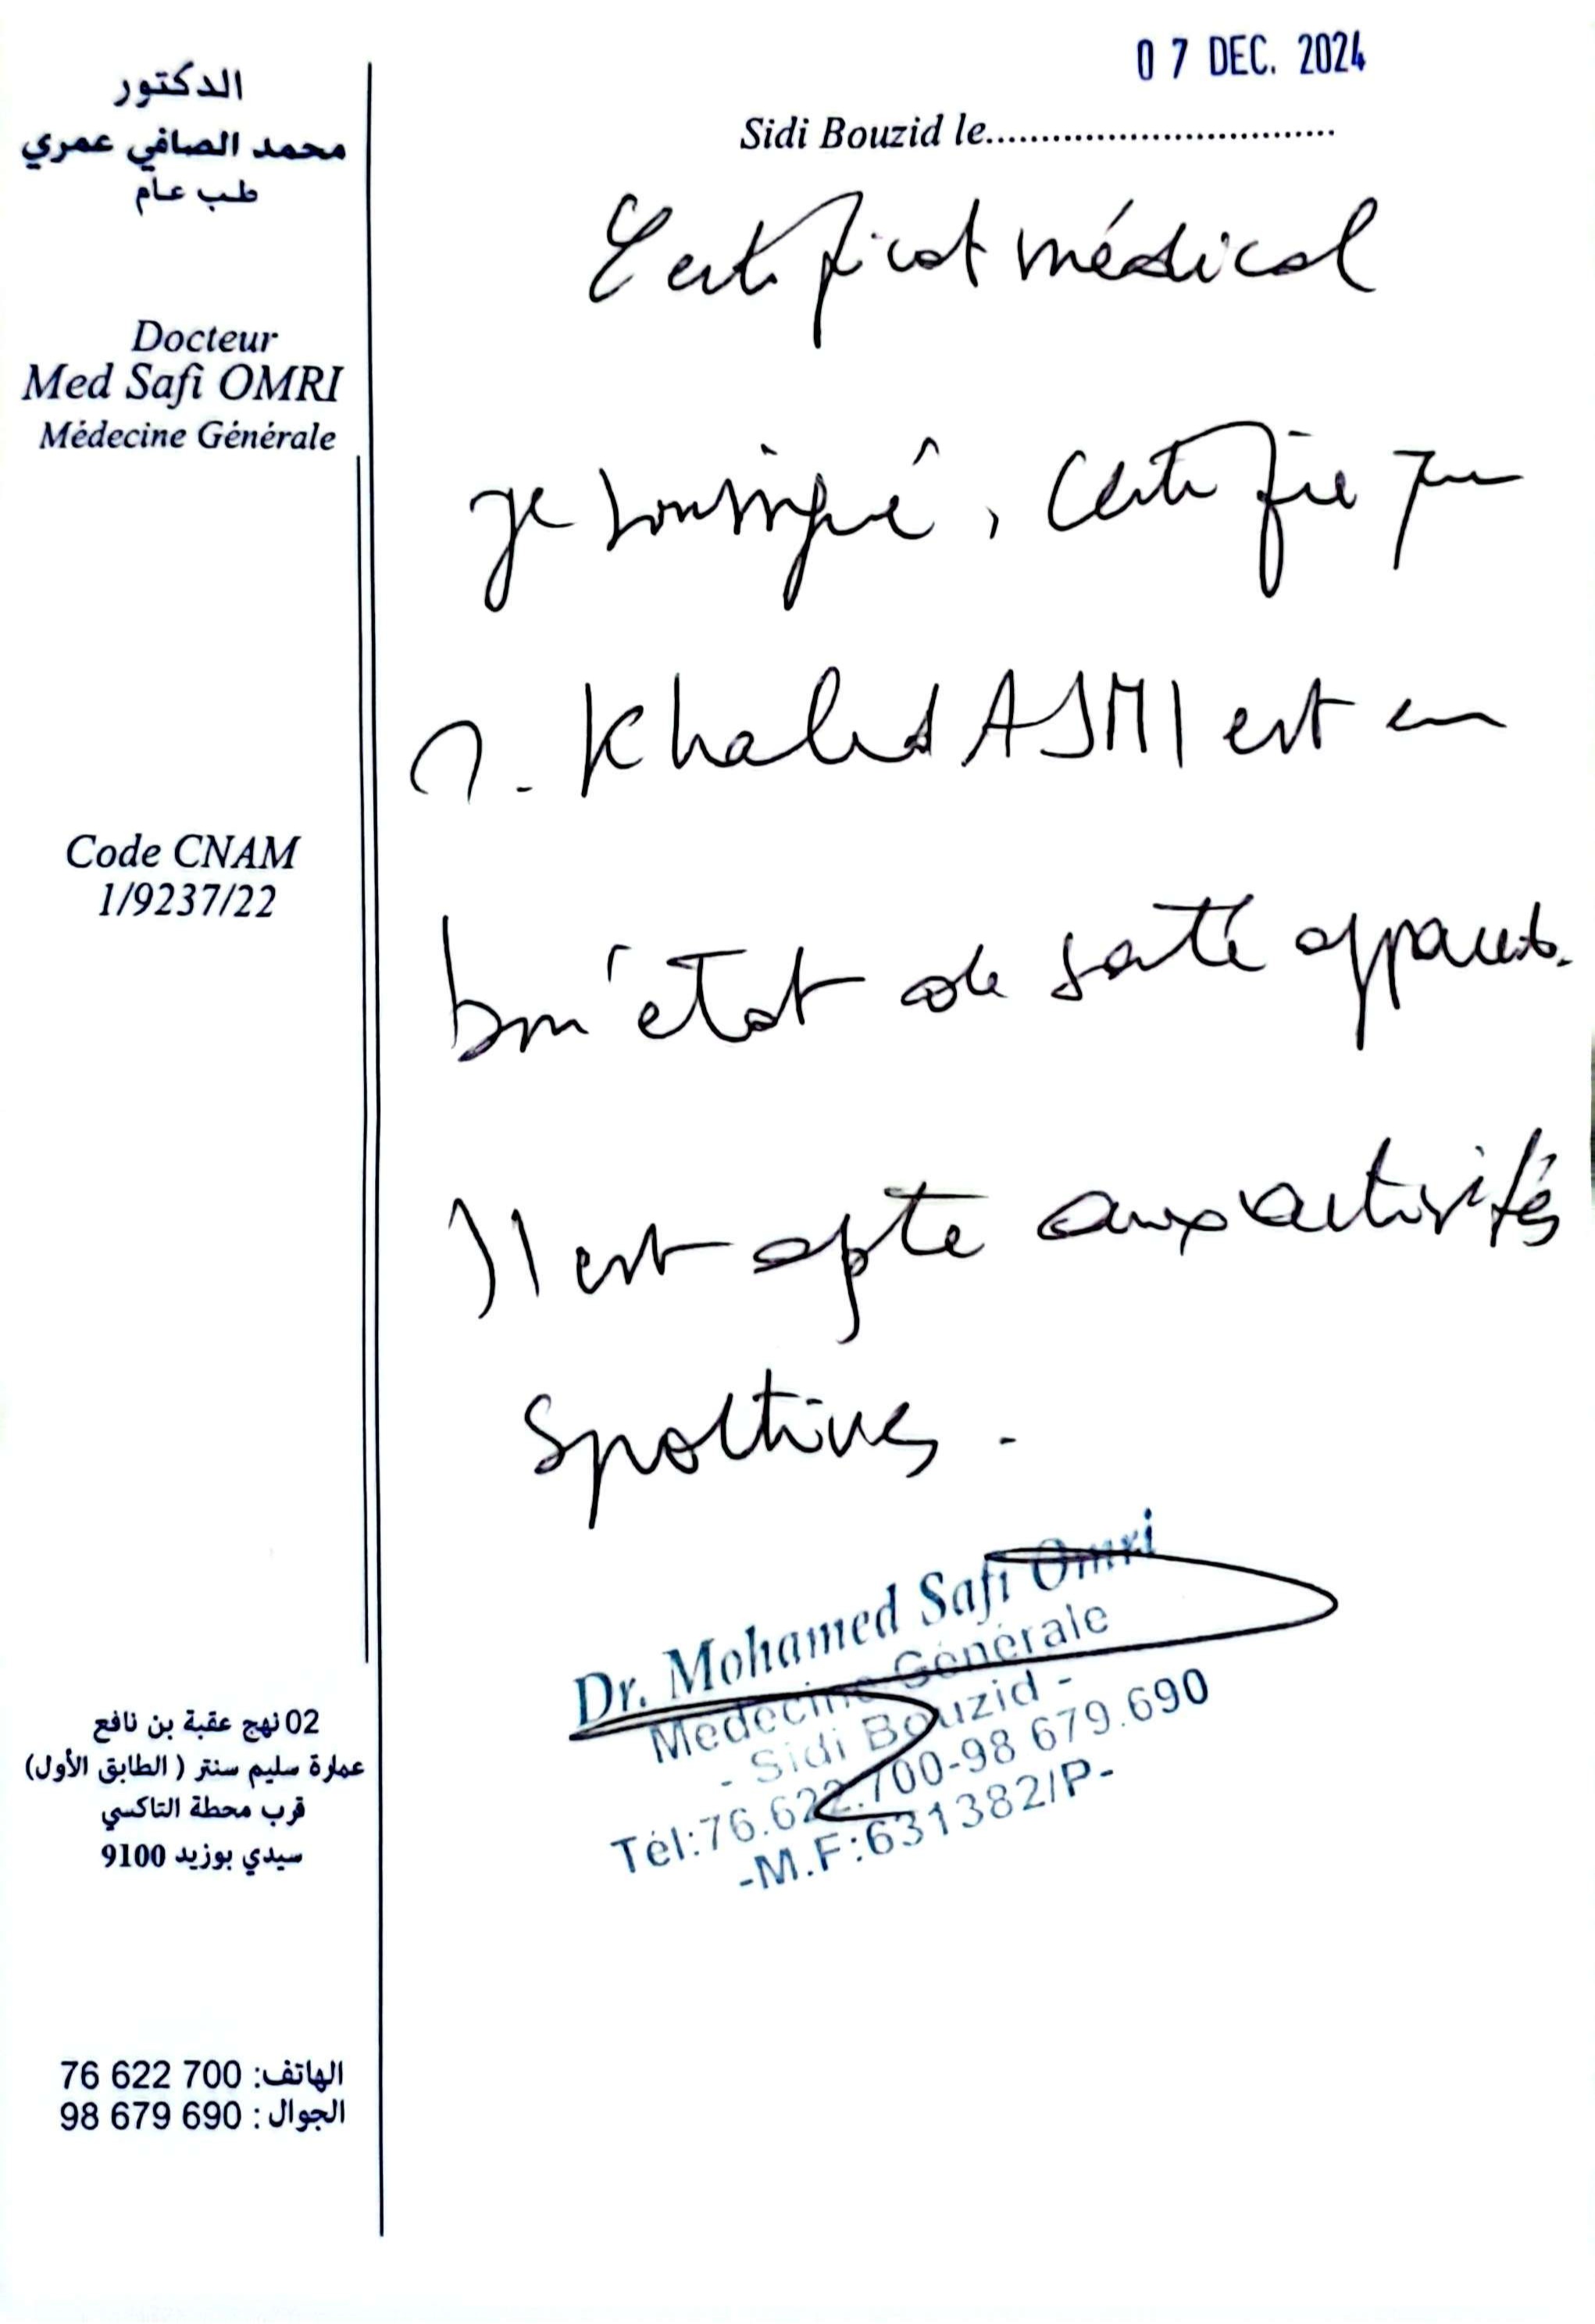 الدكتور
محمد الصافي عمري
طب عام
Docteur
Med Safi OMRI
Médecine Générale
Code CNAM
1/9237/22
02 نهج عقبة بن نافع
عمارة سليم سنتر ( الطابق الأول)
قرب محطة التاكسي
سيدي بوزيد 9100
الهاتف: 76 622 700
الجوال : 98 679 690
07 DEC. 2024
Sidi Bouzid le................................
Certificat médical
je soussigné, certifie que
M. Khaled AJMI est en
bon état de santé apparent.
Il est apte aux activités
Sportives.
Dr. Mohamed Safi Omri
Médecine Générale
- Sidi Bouzid -
Tél:76.622.700-98 679.690
-M.F:631382/P-